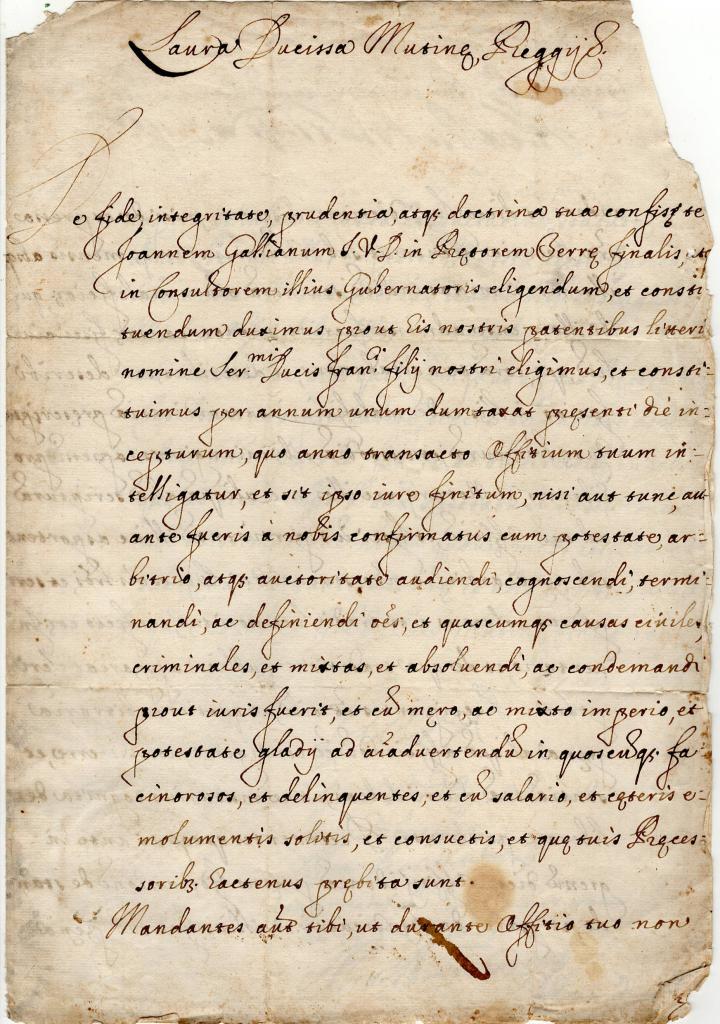 Laura Ducissa Mutinę, Reggij &.
De fide, integritate, prudentia, atqꝫ doctrina tua confisę te
Joannem Gallianum I. V. D. in Pretorem Terrę finalis, et
in Consultorem illius Gubernatoris eligendum, et consti
tuendum duximus prout his nostris patentibus litteri
nomine Ser.mi Ducis Fran.ci filij nostri eligimus, et consti-
tuimus per annum unum dumtaxat pręsenti die in-
cepturum, quo anno transacto Offitium tuum in-
telligatur, et sit ipso iure finitum, nisi aut tunc, aut
ante fueris à nobis confirmatus cum potestate, ar-
bitrio, atqꝫ auctoritate audiendi, cognoscendi, termi
nandi, ac definiendi oēs, et quascumqꝫ causas ciuiles,
criminales, et mixtas, et absoluendi, ac condemandi
prout iuris fuerit, et cū męro, ac mixto imperio, et
potestate gladij ad aīaduertendū in quoscūqꝫ fa
cinorosos, et delinquentes, et cū salario, et cęteris e-
molumentis solitis, et consuetis, et quę tuis Pręces-
soribꝫ hactenus prębita sunt.
Mandantes aūt tibi, ut durante Offitio tuo non